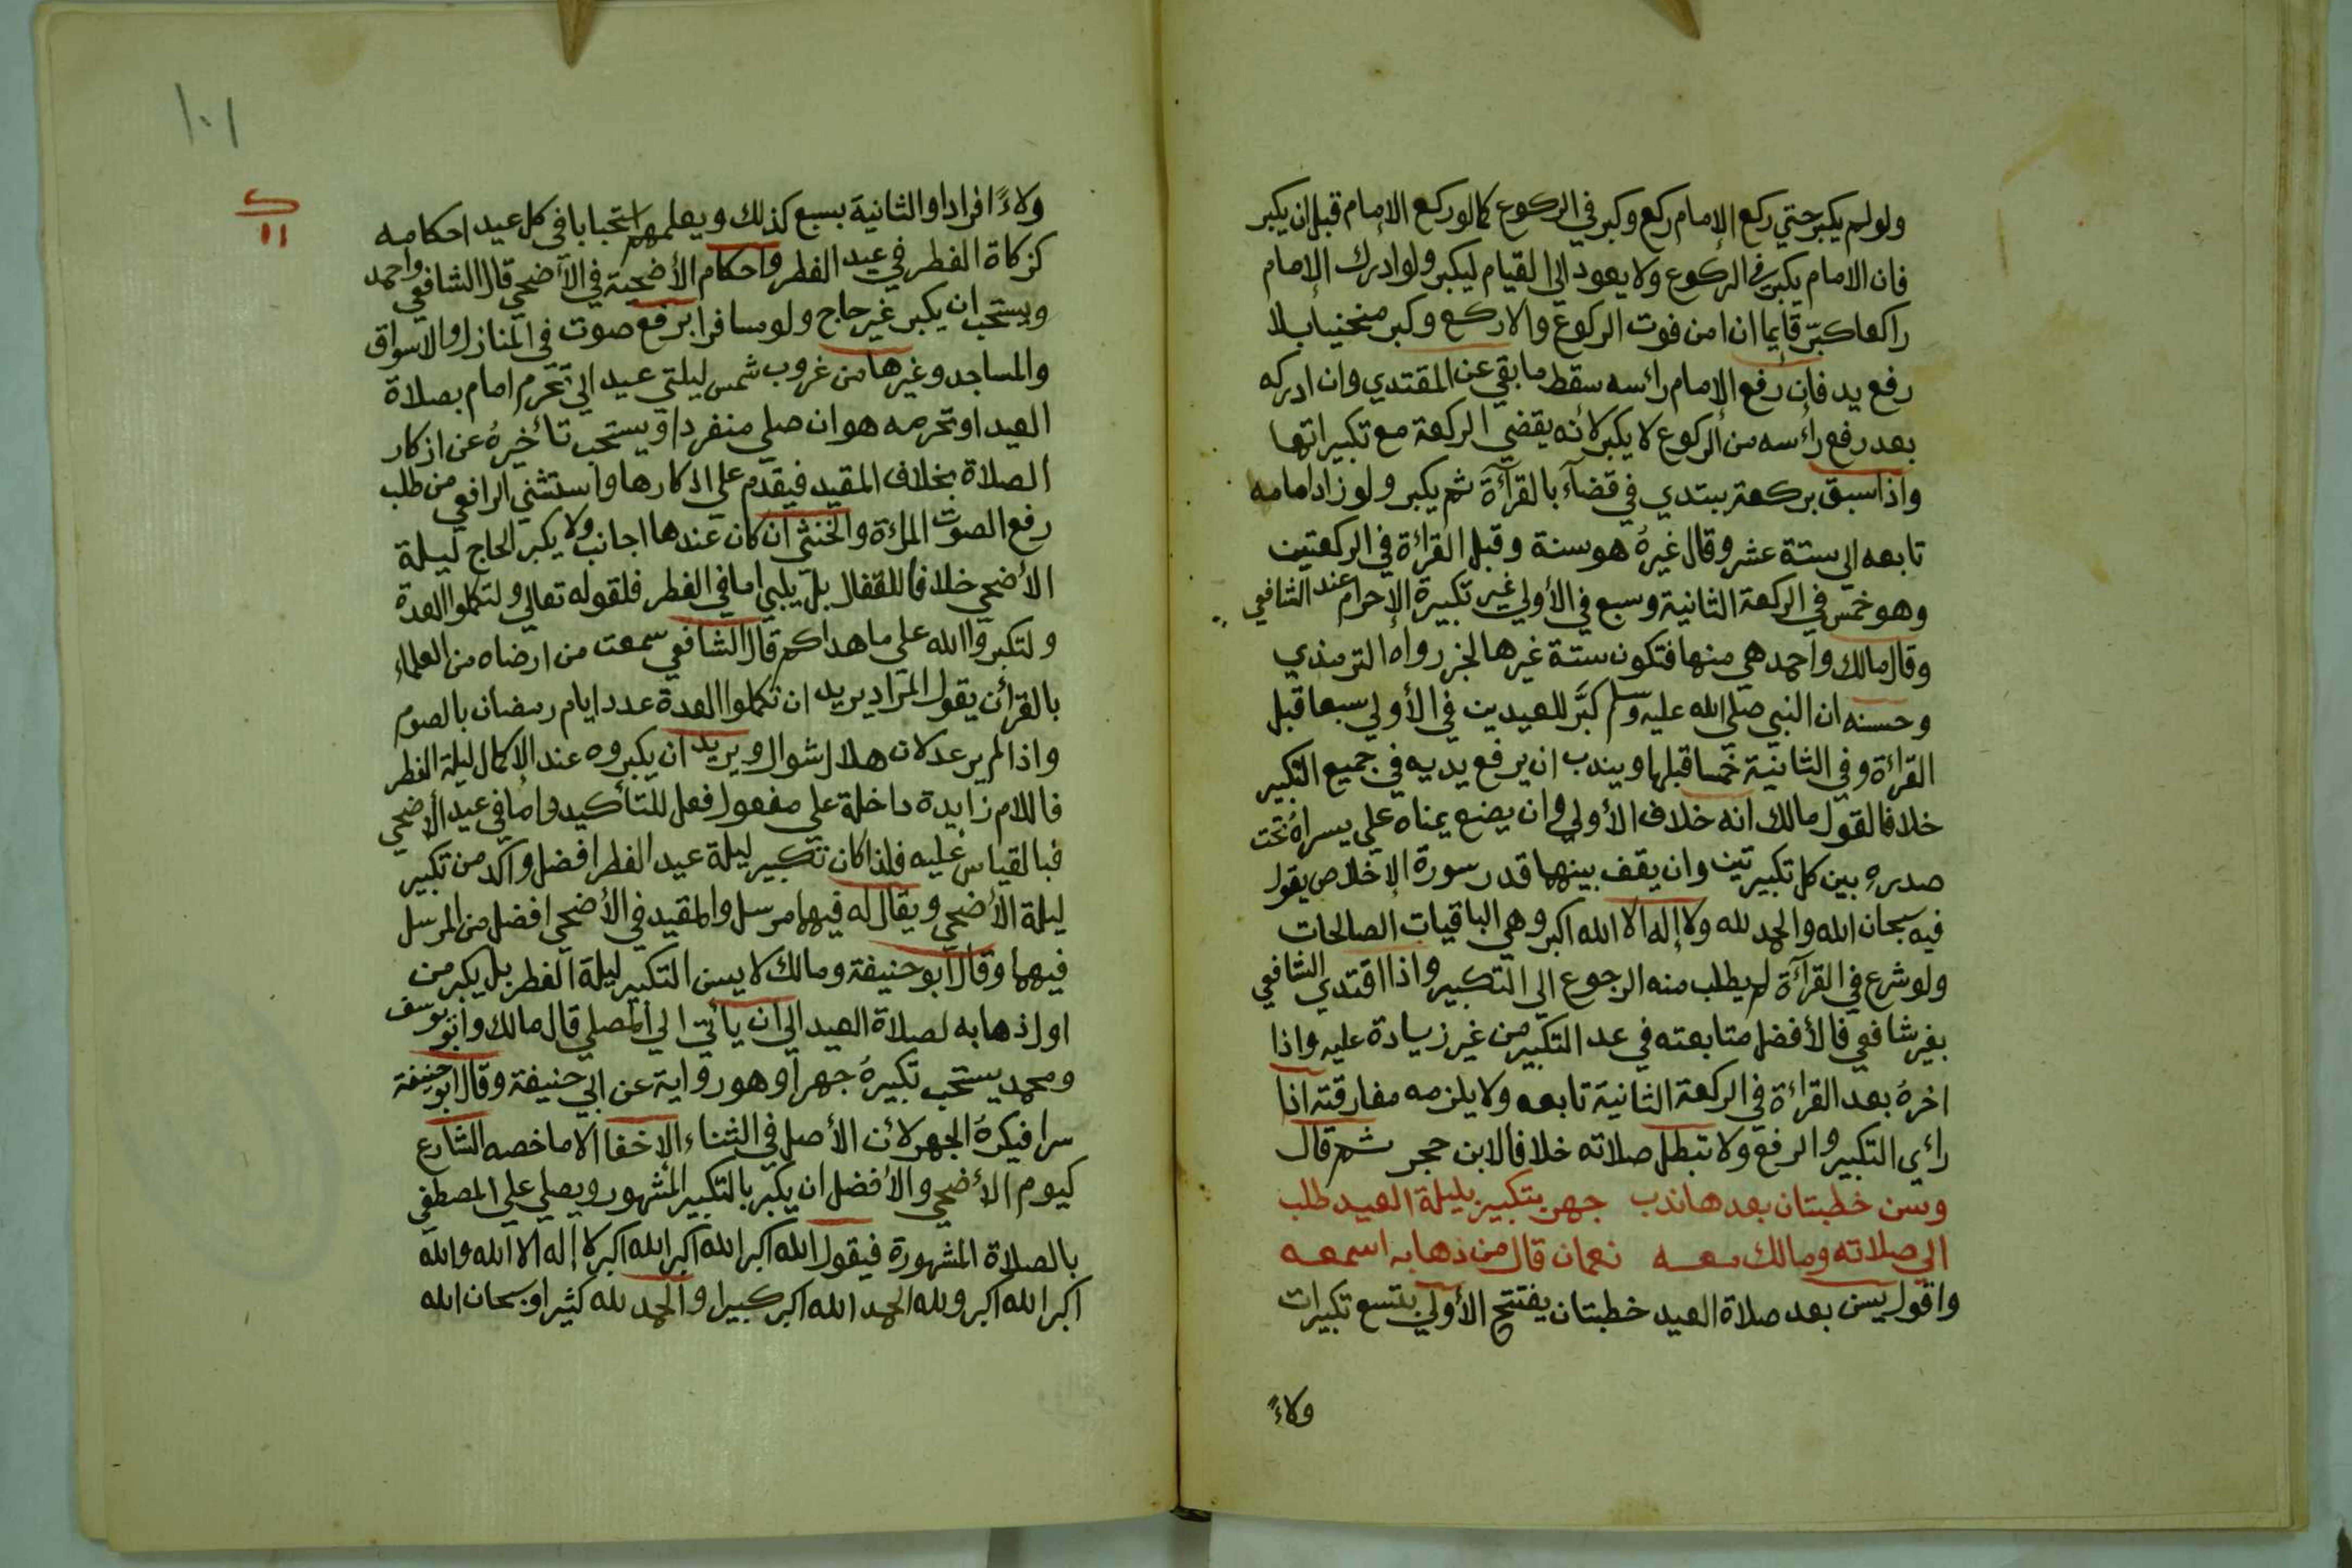 ولولم يكبر حتي ركع الإمام ركع وكبر في الركوع كمالو ركع الإمام قبل ان يكبر
فان الامام يكبر في الركوع ولا يعود الي القيام ليكبر ولوادرك الإمام
راكعا كبّر قايما ان امن فوت الركوع والا ركع وكبر منحنيا بلا
رفع يد فان رفع الإمام رائسه سقط ما بقي عن المقتدي وان ادركه
بعد رفع رائسه من الركوع لا يكبر لأنه يقضي الركعة مع تكبيراتها
واذا سبق بركعة يبتدي في قضآء بالقرآءة ثم يكبر ولو زاد امامه
تابعه الي ستة عشر وقال غيرهُ هو سنة وقبل القراءة في الركعتين
وهو خمس في الركعة الثانية وسبع في الأولي غير تكبيرة الإحرام عند الشافعي
وقال مالك واحمد هي منها فتكون ستة غيرها لخبر رواه الترمذي
وحسنه ان النبي صلي الله عليه وسلم كبَّر للعيدين في الأولي سبعا قبل
القراءة وفي الثانية خمسا قبلها ويندب ان يرفع يديه في جميع التكبير
خلافا لقول مالك انه خلاف الأولي وان يضع يمناه علي يسراهُ تحت
صدرهِ بين كل تكبيرتين وان يقف بينهما قدر سورة الإخلاص يقول
فيه سبحان الله والحمد لله ولا إله الا الله اكبر وهي الباقيات الصالحات
ولو شرع في القرآءة لم يطلب منه الرجوع الي التكبير واذا اقتدي الشافعي
بغير شافعي فالأفضل متابعته في عد التكبير من غير زيادة عليه واذا
اخرهُ بعد القراءة في الركعة الثانية تابعه ولا يلزمه مفارقته اذا
رائي التكبير والرفع ولا تبطل صلاته خلافا لابن حجر ثم قال
وسن خطبتان بعدها ندب جهر بتكبير بليلة العيد طلب
الي صلاته ومالك معه نعمان قال من ذهابه اسمعه
واقول يسن بعد صلاة العيد خطبتان يفتتح الأولي بتسع تكبيرات
ولاءً
١٠١
ك
١١
ولاءً افرادا والثانية بسبع كذلك ويعلمهم استحبابا في كل عيد احكامه
كزكاة الفطر في عيد الفطر واحكام الأضحية في الآضحي قال الشافعي واحمد
ويستحب ان يكبر غير حاج ولو مسافرا برفع صوت في المنازل والاسواق
والمساجد وغيرها من غروب شمس ليلتي عيد الي تحرم امام بصلاة
العيد او تحرمه هو ان صلي منفردا ويستحب تائخيرهُ عن اذكار
الصلاة بخلاف المقيد فيقدم علي اذكارها واستثني الرافعي من طلب
رفع الصوت المرءة والخنثي ان كان عندها اجانب ولا يكبر الحاج ليلة
الأضحي خلافا للقفال بل يلبي اما في الفطر فلقوله تعالي ولتكملوا العدة
ولتكبروا الله علي ما هداكم قال الشافعي سمعت من ارضاه من العلماء
بالقرأن يقول المراد يريد ان تكملوا العدة عدد ايام رمضان بالصوم
واذا لم ير عدلان هلال شوال ويريد ان يكبروه عند الإكمال ليلة الفطر
فاللام زايدة داخلة علي مفعول فعل للتأكيد واما في عيد الأضحي
فبالقياس عليه فلذا كان تكبير ليلة عيد الفطر افضل وآكد من تكبير
ليلة الأضحي ويقال له فيهما مرسل والمقيد في الأضحي افضل من المرسل
فيهما وقال ابو حنيفة ومالك لا يسن التكبير ليلة الفطر بل يكبر من
اول ذهابه لصلاة العيد الي ان يائتي الي المصلي قال مالك وابو يوسف
ومحمد يستحب تكبيرهُ جهرا وهو رواية عن ابي حنيفة وقال ابو حنيفة
سرا فيكرهُ الجهر لأن الأصل في الثناء الإخفا الا ما خصه الشارع
كيوم الأضحي والأفضل ان يكبر بالتكبير المشهور ويصلي علي المصطفي
بالصلاة المشهورة فيقول الله اكبر الله اكبر الله اكبر لا إله الا الله والله
اكبر الله اكبر ولله الحمد الله اكبر كبيرا والحمد لله كثيرا وسبحان الله